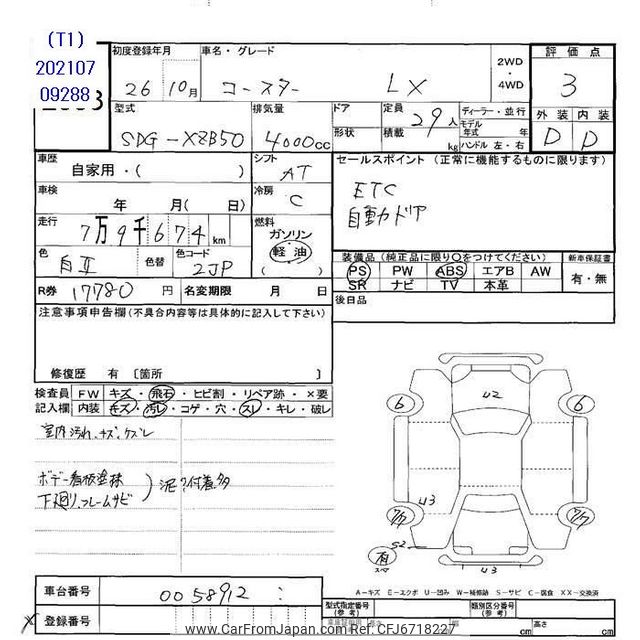 (T1)
202107
09288
初度登録年月
26 10月
車名・グレード
コースター LX
2WD
・
4WD
評価点
3
型式
SDG-XZB50
排気量
4000cc
ドア
形状
定員 29人
積載 kg
ディーラー・並行
モデル
年式 年
ハンドル 左・右
外装 内装
D D
車歴
自家用・( )
シフト
AT
セールスポイント (正常に機能するものに限ります)
ETC
自動ドア
車検 年 月( 日)
冷房 C
走行
7万9千674km
燃料
ガソリン
軽油
( )
色
白Ⅱ
色替
色コード
2JP
装備品 (純正品に限り○をつけてください)
新車保証書
PS PW ABS エアB AW
SR ナビ TV 本革
有・無
R券 17780円
名変期限 月 日
後日品
注意事項申告欄(不具合内容等は具体的に記入して下さい)
修復歴 有 〔箇所 〕
検査員 FW キズ・飛石・ヒビ割・リペア跡・×要
記入欄 内装 キズ・汚レ・コゲ・穴・スレ・キレ・破レ
室内汚れ、キズ、ケズレ
ボデー看板塗抹
下廻り、フレームサビ
泥?付着多
U2
6 6
U3
7/7 7/7
有
スマ
S2
U3
A-キズ E-エクボ U-凹み W-補修跡 S-サビ C-腐食 XX-交換済
車台番号
0058912
登録番号
型式指定番号
類別区分番号
cm
高さ
cm
www.CarFromJapan.com Ref: CFJ6718227